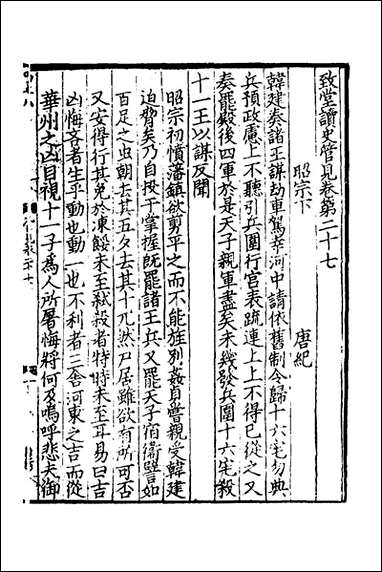 致堂讀史管見卷第二十七
昭宗下
唐紀
韓建奏諸王謀劫車駕幸河中請依舊制令歸十六宅勿典
兵預政慮上不聽引兵圍行宮表疏連上上不得已從之又
奏罷殿後四軍於是天子親軍盡矣未幾發兵圍十六宅殺
十一王以謀反聞
昭宗初憤藩鎮欲剪平之而不能旌別姦良嘗親受韓建
迫脅矣乃自投于掌握既罷諸王兵又罷天子宿衞譬如
百足之虫朝去其五夕去其十兀然尸居雖欲有所可否
又安得行其免於凍餒未至弒殺者特時未至耳易曰吉
凶悔吝者生乎動也動一也不利者三舍河東之吉而從
華州之凶目視十一子爲人所屠悔將何及嗚呼悲夫御